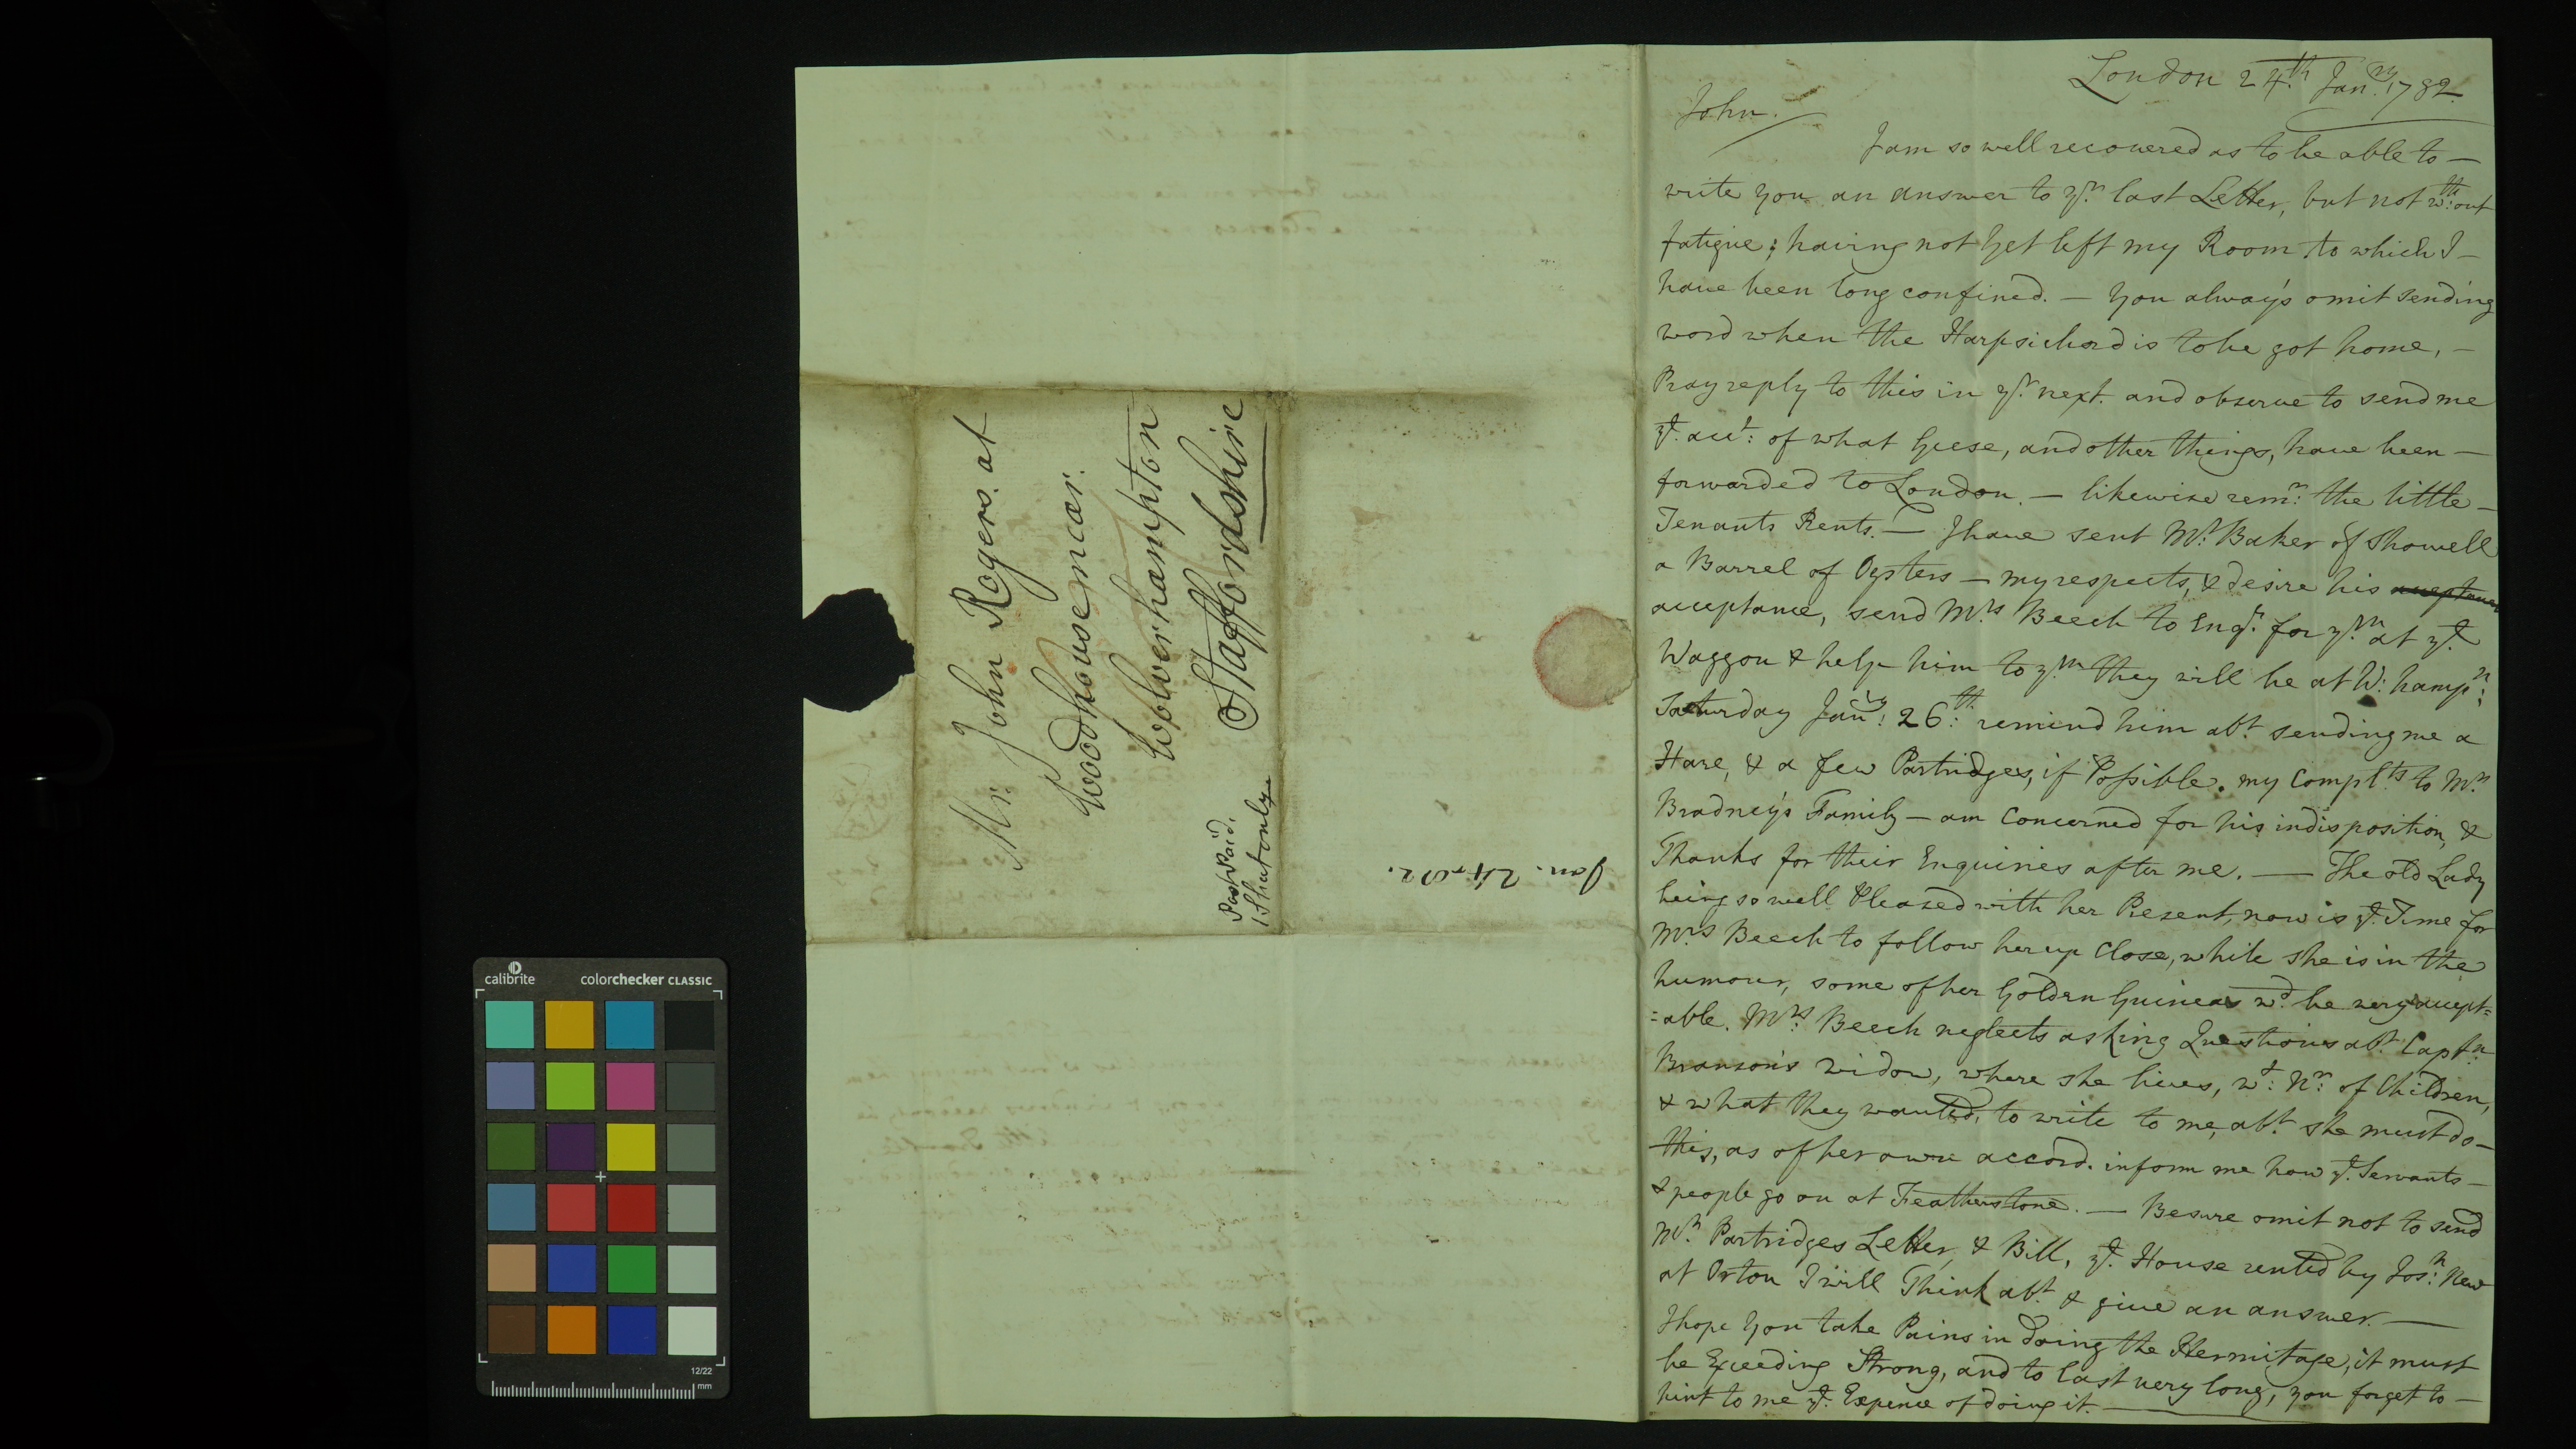 Mr. John Rogers. at
Woodhouse near.
Wolverhampton
Staffordshire
Post Paid.
1 Sheet only
Jan. 24. 82.
London 24th. Janry. 1782
John.
I am so well recovered as to be able to —
write you an answer to yr. last Letter, but not wth:out
fatigue; having not yet left my Room to which I —
have been long confined. — You always omit sending
word when the Harpsichord is to be got home, —
Pray reply to this in yr. next. and observe to send me
ye. acct: of what Geese, and other things, have been —
forwarded to London. — likewise remr: the little —
Tenants Rents. — I have sent Mr: Baker of Showell
a Barrel of Oysters — my respects, & desire his acceptance
acceptance, send Mrs Beech to Enqr. for ym at ye.
Waggon & help him to ym they will be at W: hampn:
Saturday Janry: 26th: remind him abt. sending me a
Hare, & a few Partridges, if Possible. my Complts. to Mr.
Bradney's Family — am Concerned for his indisposition, &
Thanks for their Enquiries after me. — The old Lady
being so well Pleased with her Present, now is ye. Time for
Mrs Beech to follow her up Close, while she is in the
humour, some of her Golden Guineas wd. be very accept=
=able. Mrs: Beech neglects asking Questions abt. Captn.
Branson's widow, where she lives, wt: Nr: of Children,
& what they wanted, to write to me, abt. she must do —
this, as of her own accord. inform me how ye. Servants —
& people go on at Featherstone. — Be sure omit not to send
Mr. Partridges Letter, & Bill, ye. House rented by Josh: New
at Orton I will Think abt. & give an answer. —
I hope You take Pains in doing the Hermitage, it must
be Exceeding Strong, and to last very long, you forget to —
hint to me ye. Expence of doing it. —
calibrite
colorchecker CLASSIC
12/22
mm